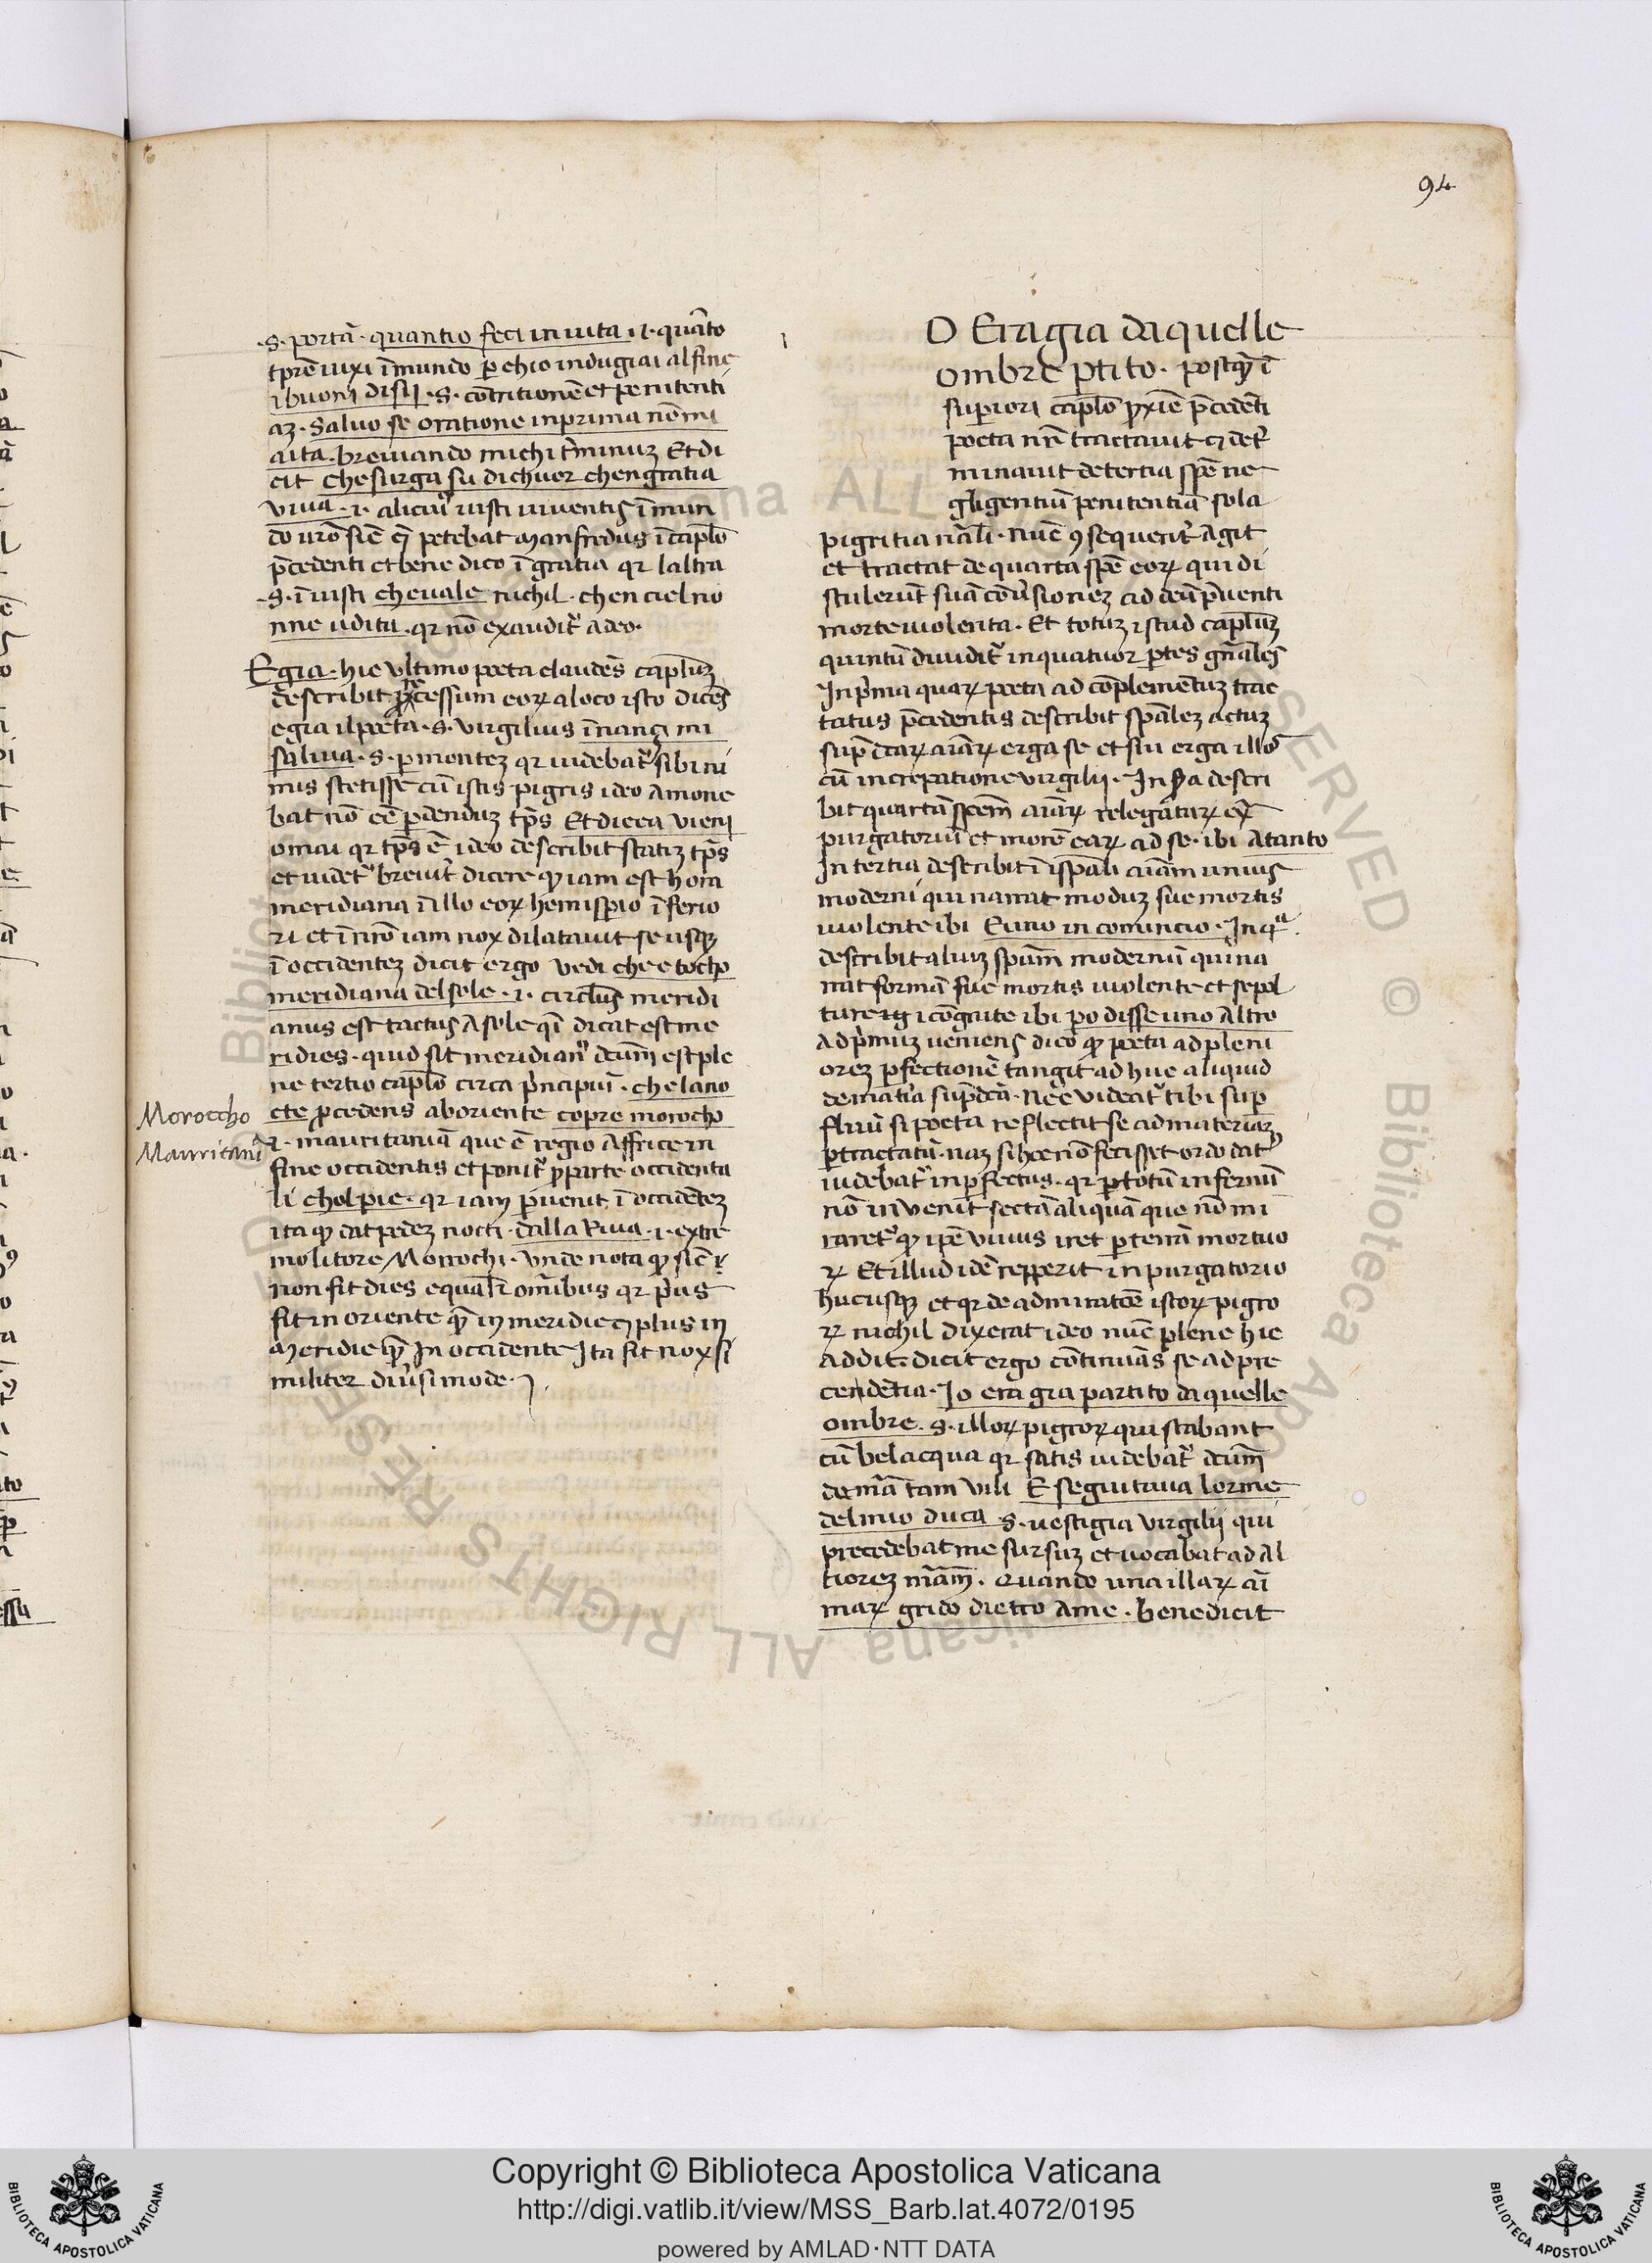 94
.s. portā . quantio feci in uita .i. quāto
tp̄re uixi ī mundo p̱ chio indugiai al fine
i buoni disij .s. contritionē et penitenti
aꝫ . Saluo se oratione in prima nō mi
aita . breuiando michi t̄minuꝫ Et di
cit che surga su di chuor chen gratia
viua .i. alicuiꝰ iusti uiuentis ī mun
do uro sic̄ q̄ petebat Manfredus ī cap̄lo
p̄cedenti et bene dico ī gratia qr laltra
.s. ī iusti che uale nichil . chen ciel no
nne udita . qr nō exaudit᷑ a deo .
Egia . hic vltimo poeta claudēs cap̄luꝫ
describit ꝓcessum eoꝝ a loco isto dicēs
egia il poēta .s. virgilius īnançi mi
saliua .s. p̱ monteꝫ qr uidebat᷑ sibi ni
mis stetisse cū istis pigris ideo amone
bat nō eē p̱denduꝫ tp̄s Et dicea vieni
omai qr tp̄s ē ideo describit statiꝫ tp̄s
et uidet᷑ breuit᷑ dicere ꝙ iam est hora
meridiana ī illo eoꝝ hemisperio īferio
ri et ī nr̄o iam nox dilatauit se usqꝫ
ī occidenteꝫ dicit ergo vedi che e tocho
meridiana del sole .i. circl̄us meridi
anus est tactus a sole q̄i dicat est me
ridies . quid sit meridianꝰ dcūm est ple
ne tertio cap̄lo circa p̄ncipiū . che la no
cte p̄cedens ab oriente copre morocho
Moroccho
Mauritani
.i. mauritaniā que ē regio Affrice in
fine occidentis et ponit᷑ ꝓ parte occidenta
li chol pie . qr iam p̱uenit ī occidēteꝫ
ita ꝙ dat pedeꝫ nocti . dalla Riua .i. extre
mo litore Morrochi . vnde nota ꝙ sic̄
non fit dies equalī omībus qr p̄us
fit in oriente q̄ in meridie ⁊ plus in
Meridie q̄ In occidente Ita fit nox si
militer diū̄simode .
O Era gia da quelle
ombre p̱tito . postq̄ ī
sup̱iori cap̄lo ꝓxīe p̄cedēti
poeta nr̄ tractauit ⁊ det᷑
minauit de tertia spē ne
gligentiū penitentiā sola
pigritia nāli . nūc ꝯsequent᷑ Agit
et tractat de quarta spē eoꝝ qui di
stulerūt suā cōū̄sioneꝫ ad deū p̄uenti
morte uiolenta . Et totuꝫ istud cap̄luꝫ
quintū diuidit᷑ in quatuor p̱tes gn̄ales
In p̄ma quaꝝ poeta ad cōplemētuꝫ trac
tatus p̄cedentis describit sp̄aleꝫ actuꝫ
sup̱dc̄aꝝ aīaꝝ erga se et sui erga illos
cū increpatione virgilij . In 2a descri
bit quartā spem aīaꝝ relegataꝝ ex̄
purgatoriū et morē eaꝝ ad se . ibi Atanto
In tertia describit ī isp̄ali aīam unius
moderni qui narrat moduꝫ sue mortis
uiolente ibi Et uno in comincio . In q̄ᵃ.
describit aliuꝫ sp̄um modernū qui na
rrat formā sue mortis uiolente et sepol
ture ibi po disse uno altro
Ad p̄muꝫ ueniens dico ꝙ poeta ad pleni
oreꝫ p̱fectionē tangit ad huc aliquid
de mat̄ia sup̱dc̄ā . Nec videat᷑ tibi sup̱
fluū si poeta reflectit se ad materiaꝫ
p̱tractatā . naꝫ si hoc nō fecisset ordo dat᷑
uidebat᷑ inp̱fectus . qr p̱ totū infernū
nō inuenit sectā aliquā que nō mi
raret᷑ ꝙ ip̄e viuus iret p̱ terrā mortuo
ꝝ Et illud idē repperit in purgatorio
hucusqꝫ et qr de admiratōe istoꝝ pigro
ꝝ nichil dixerat ideo nūc plene hic
addit . dicit ergo cōtinuās se ad pre
cendētia . Io era gia partito da quelle
ombre .s. illoꝝ pigroꝝ qui stabant
cū belacqua qr satis uidebat᷑ dcūm
de mā̄ tam vili E seguitaua lorme
del mio duca .s. uestigia virgilij qui
precedebat me sursuꝫ et uocabat ad al
tioreꝫ mām . Quando una illaꝝ aī
maꝝ grido dietro Ame . bene dicit
Copyright © Biblioteca Apostolica Vaticana
http://digi.vatlib.it/view/MSS_Barb.lat.4072/0195
powered by AMLAD·NTT DATA